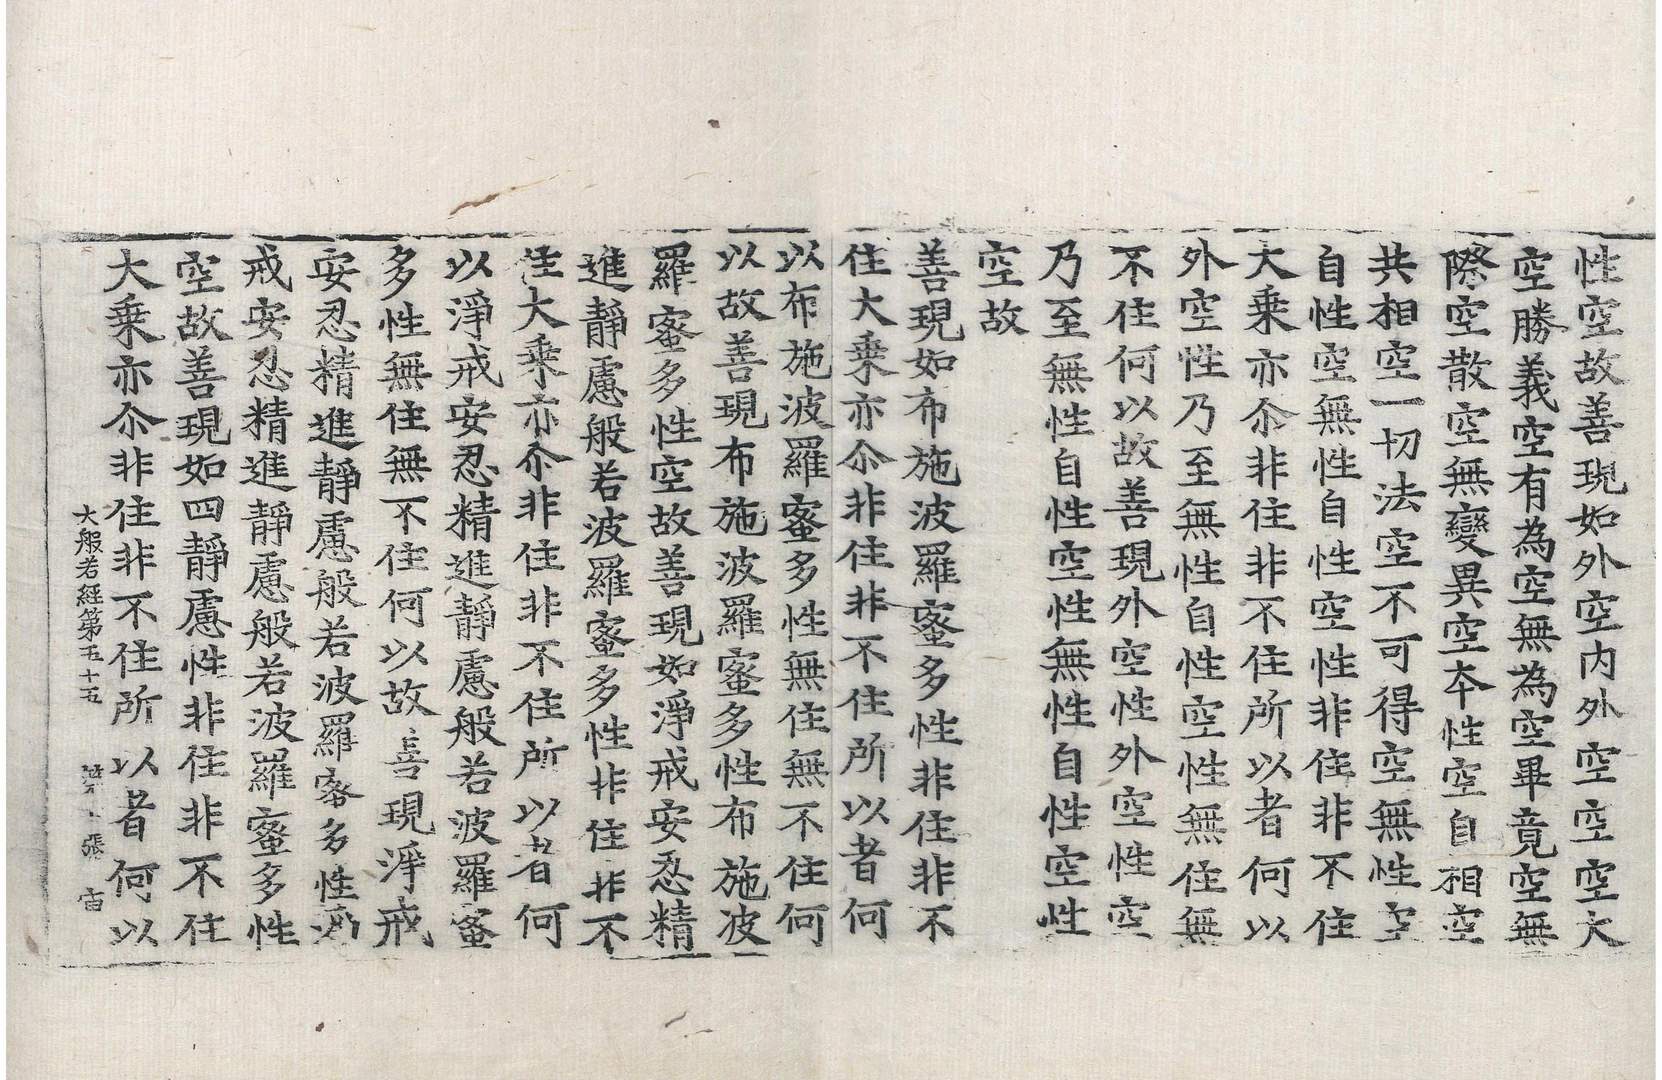 性空故善現如外空內外空空空大
空勝義空有為空無為空畢竟空無
際空散空無變異空本性空自相空
共相空一切法空不可得空無性空
自性空無性自性空性非住非不住
大乘亦尒非住非不住所以者何以
外空性乃至無性自性空性無住無
不住何以故善現外空性外空性空
乃至無性自性空性無性自性空性
空故
善現如布施波羅蜜多性非住非不
住大乘亦尒非住非不住所以者何
以布施波羅蜜多性無住無不住何
以故善現布施波羅蜜多性布施波
羅蜜多性空故善現如淨戒安忍精
進靜慮般若波羅蜜多性非住非不
住大乘亦尒非住非不住所以者何
以淨戒安忍精進靜慮般若波羅蜜
多性無住無不住何以故善現淨戒
安忍精進靜慮般若波羅蜜多性淨
戒安忍精進靜慮般若波羅蜜多性
空故善現如四靜慮性非住非不住
大乘亦尒非住非不住所以者何以
大般若經第五十五 第 張 宙